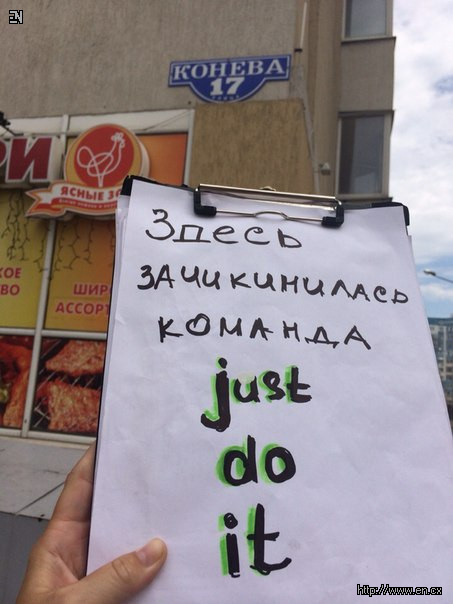 EN
КОНЕВА
17
РИ
ЯСНЫЕ
КОЕ
ВО
ШИР
АССОРТ
Здесь
ЗАЧИКИНИЛАСЬ
КОМАНДА
just
do
it
http://www.en.cx